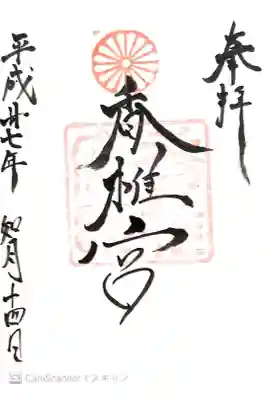 奉拝
香椎宮
平成廿七年 如月十四日
CamScanner でスキャン